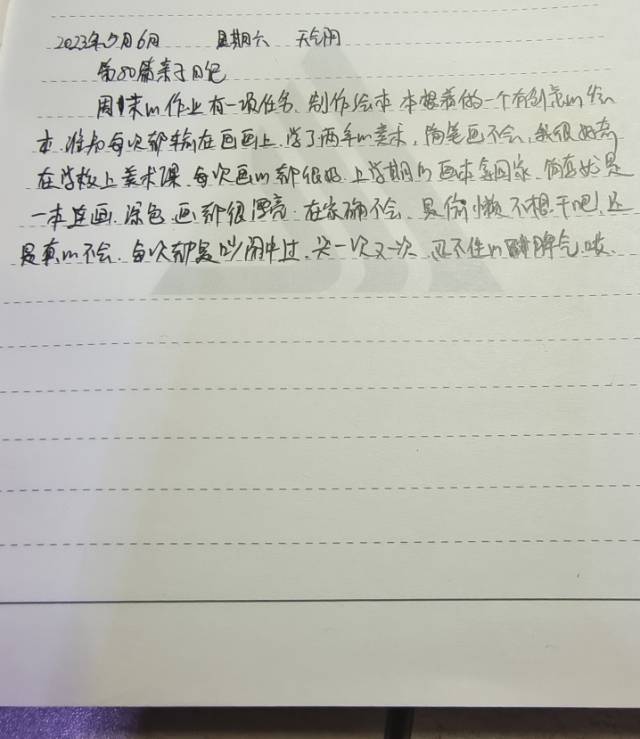 2023年5月6月 星期六 天气阴
第80篇亲子日记
周末的作业有一项任务、制作绘本 本想着做一个有创意的绘
本.谁知每次都输在画画上.学了两年的美术,简笔画不会,我很好奇
在学校上美术课.每次画的都很好.上学期的画本拿回家.简直就是
一本连画.涂色.画都很漂亮.在家确不会、是你懒不想干吧,还
是真的不会.每次都是吵闹中过.关一次又一次.忍不住的脾气.唉.